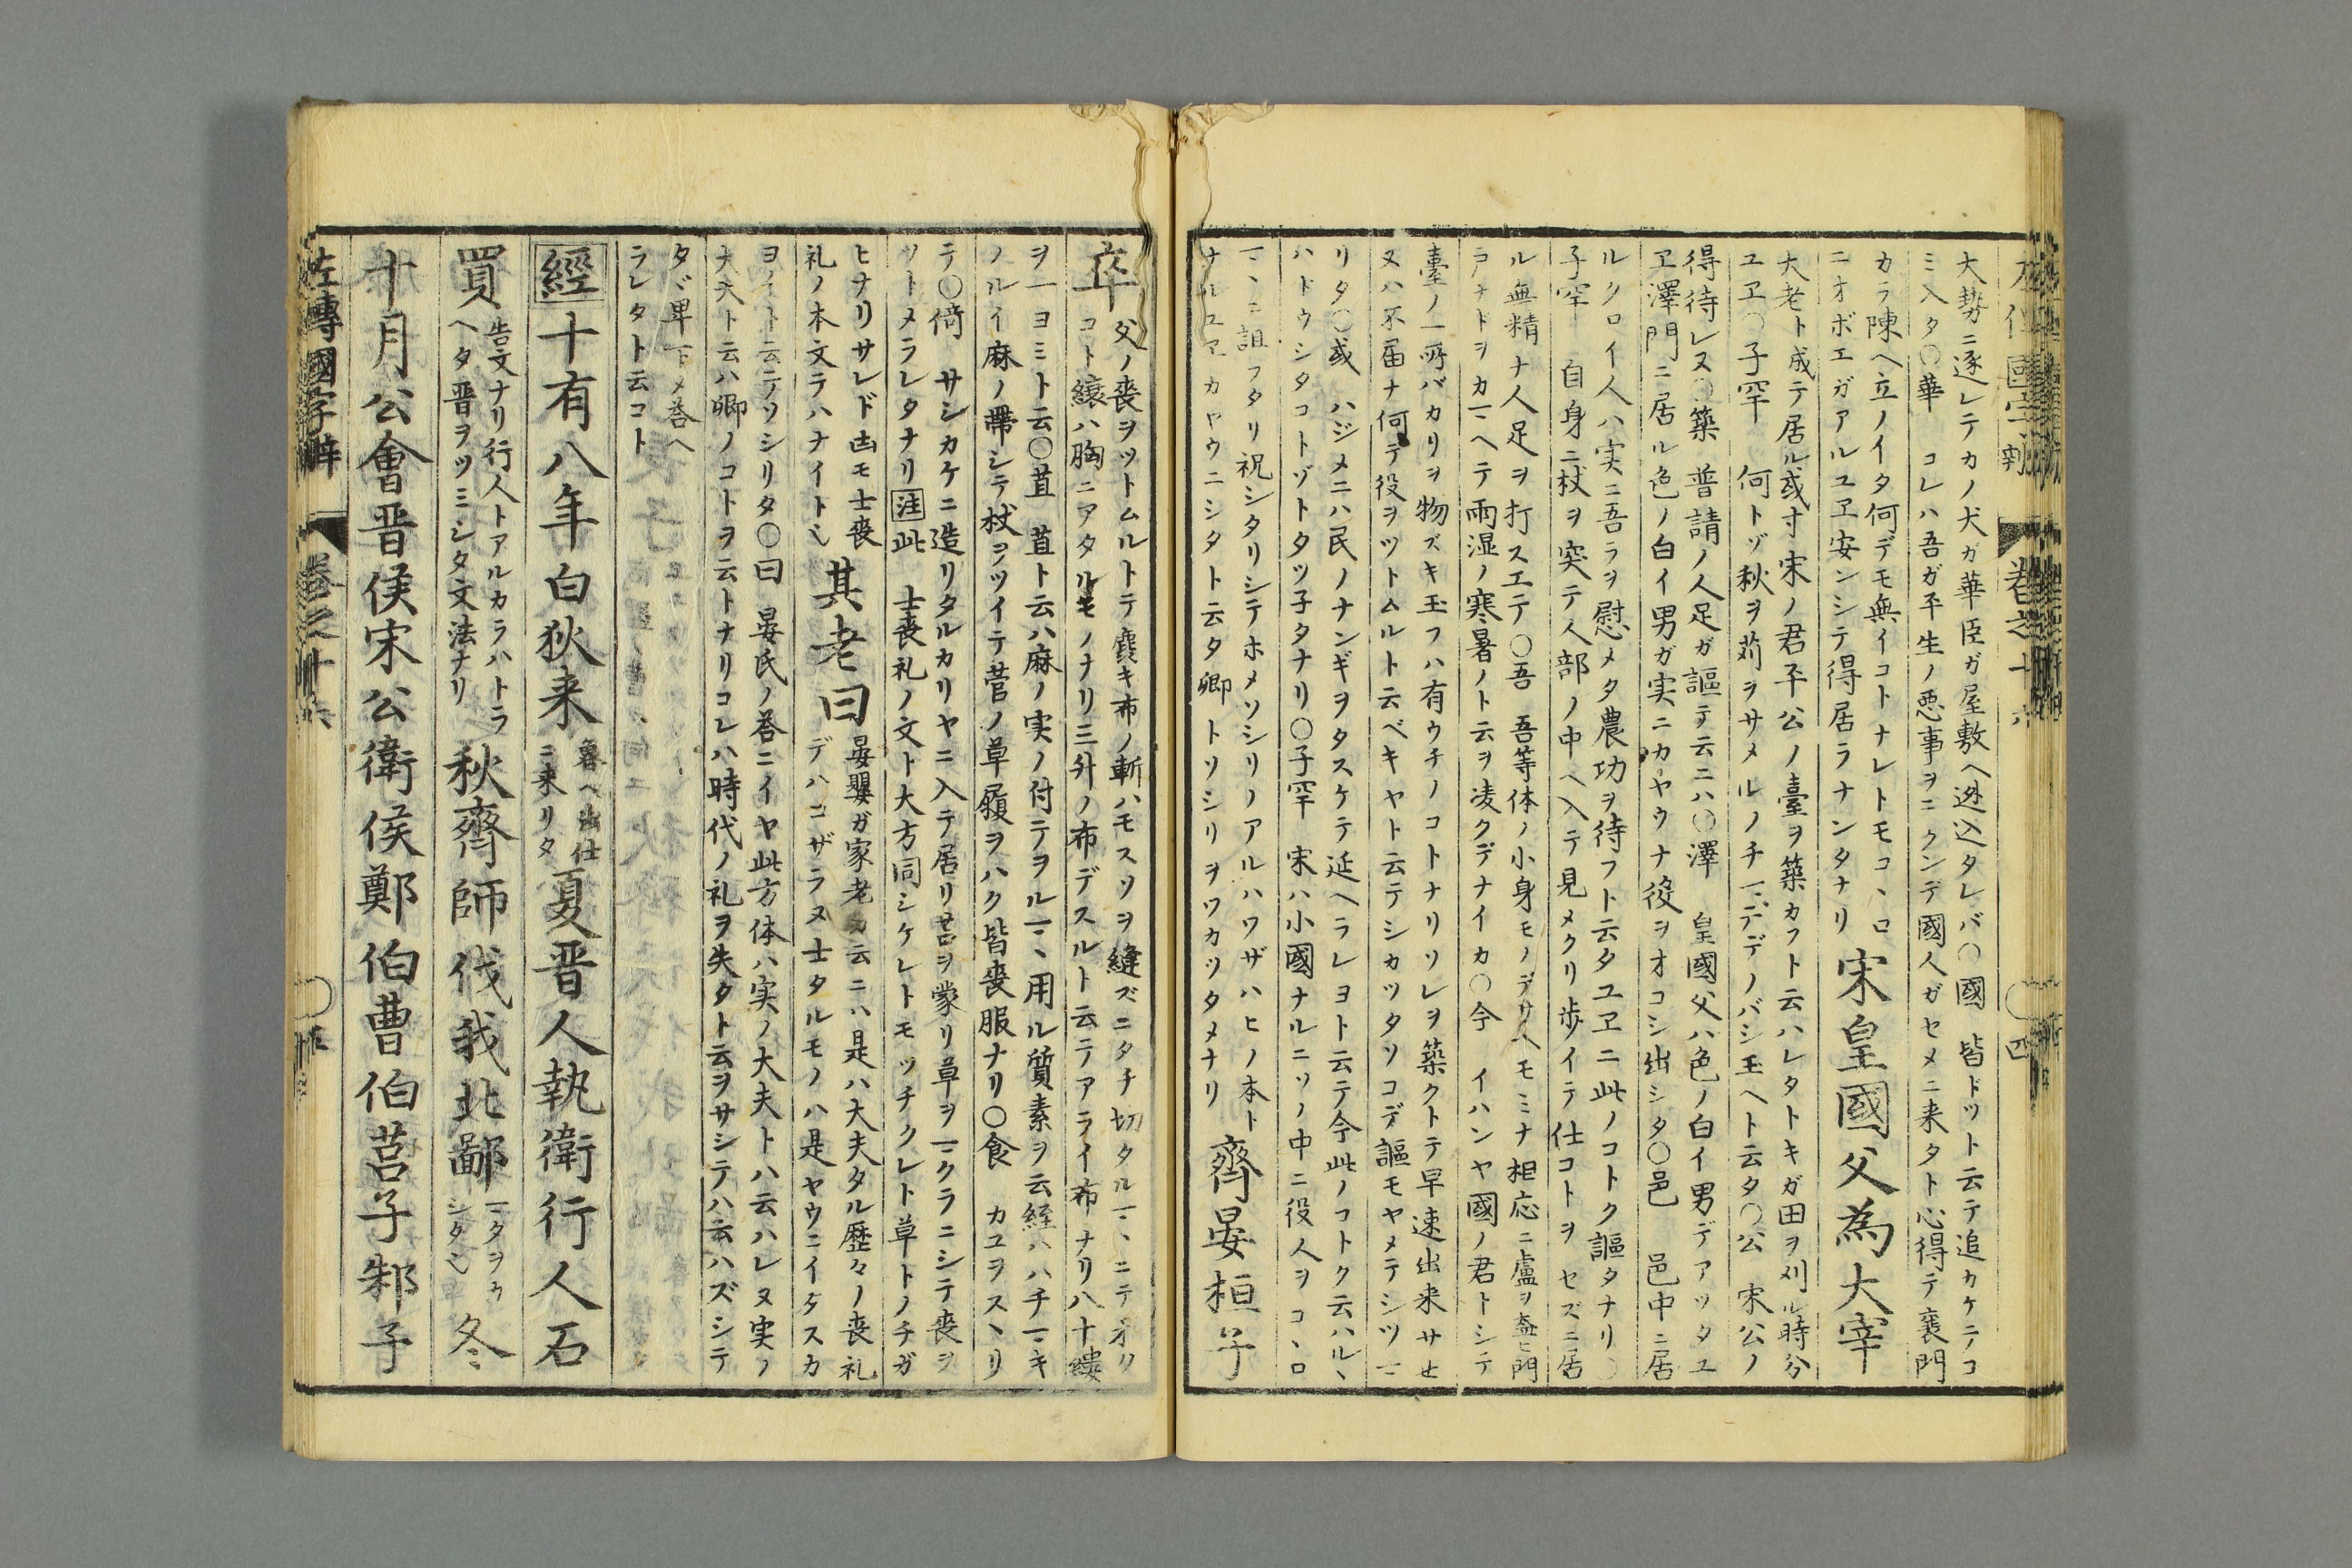 大勢ニ逐レテカノ犬ガ華臣ガ屋敷ヘ迯込タレバ〇國 皆ドツト云テ追カケテコ
ミ入タ〇華 コレハ吾ガ平生ノ悪事ヲニクンデ國人ガセメニ来タト心得テ襄門
カラ陳ヘ立ノイタ何デモ無イコトナレトモコヽロ
ニオボエガアルユヱ安ンシテ得居ラナンタナリ
宋皇國父為大宰
大老ト成テ居ル或寸宋ノ君平公ノ臺ヲ築カフト云ハレタトキガ田ヲ刈ル時分
ユヱ〇子罕 何トゾ秋ヲ苅ヲサメルノチマデデノバシ玉ヘト云タ〇公 宋公ノ
得待レヌ〇築 普請ノ人足ガ謳テ云ニハ〇澤 皇國父ハ色ノ白イ男デアツタユ
ヱ澤門ニ居ル色ノ白イ男ガ実ニカヤウナ役ヲオコシ出シタ〇邑 邑中ニ居
ルクロイ人ハ実ニ吾ラヲ慰メタ農功ヲ待フト云タユヱニ此ノコトク謳タナリ〇
子罕 自身ニ杖ヲ突テ人部ノ中ヘ入テ見メクリ歩イテ仕コトヲセズニ居
ル無精ナ人足ヲ打スエテ〇吾 吾等体ノ小身モノデサヘモミナ相応ニ盧ヲ盍ヒ門
戸ナドヲカマヘテ雨湿ノ寒暑ノト云ヲ凌クデナイカ〇今 イハンヤ國ノ君トシテ
臺ノ一所バカリヲ物ズキ玉フハ有ウチノコトナリソレヲ築クトテ早速出来サセ
ヌハ不届ナ何テ役ヲツトムルト云ベキヤト云テシカツタソコデ謳モヤメテシツマ
リタ〇或 ハジメニハ民ノナンギヲタスケテ延ヘラレヨト云テ今此ノコトク云ハルヽ
ハドウシタコトゾトタツ子タナリ〇子罕 宋ハ小國ナルニソノ中ニ役人ヲコヽロ
マヽニ詛フタリ祝シタリシテホメソシリノアルハワザハヒノ本ト
ナルユヱカヤウニシタト云タ卿 トソシリヲワカツタメナリ
齊晏桓子
卒
父ノ喪ヲツトムルトテ麄キ布ノ斬ハモスソヲ縫ズニタチ切タルマヽニテオリ
コト縗ハ胸ニアタルモノナリ三升ノ布デスルト云テアライ布ナリ八十縷
ヲ一ヨミト云〇苴 苴ト云ハ麻ノ実ノ付テヲルマヽ用ル質素ヲ云絰ハハチマキ
ノルイ麻ノ帶シテ杖ヲツイテ菅ノ草履ヲハク皆喪服ナリ〇食 カユヲスヽリ
テ〇倚 サシカケニ造リタルカリヤニ入テ居リ苫ヲ蒙リ草ヲマクラニシテ喪ヲ
ツトメラレタナリ注此 士喪礼ノ文ト大方同シケレトモツチクレト草トノチガ
ヒナリサレド凷モ士喪
礼ノ本文テハナイト也
其老曰
晏嬰ガ家老カ云ニハ是ハ大夫タル歴々ノ喪礼
デハゴザラヌ士タルモノハ是ヤウニイタスカ
ヨイト云テソシリタ〇曰 晏氏ノ荅ニイヤ此方体ハ実ノ大夫トハ云ハレヌ実ノ
大夫ト云ハ卿ノコトヲ云トナリコレハ時代ノ礼ヲ失タト云ヲサシテハ云ハズシテ
タヾ卑下メ荅ヘ
ラレタト云コト
經十有八年白狄来
魯ヘ出仕
ニ来リタ
夏晋人執衛行人石
買
告文ナリ行人トアルカラハトラ
ヘタ晋ヲツミシタ文法ナリ
秋齊師伐我北鄙
マタヲカ
シタ也
冬
十月公會晋侯宋公衛侯鄭伯曹伯莒子邾子
左傳國字辯 卷之十六